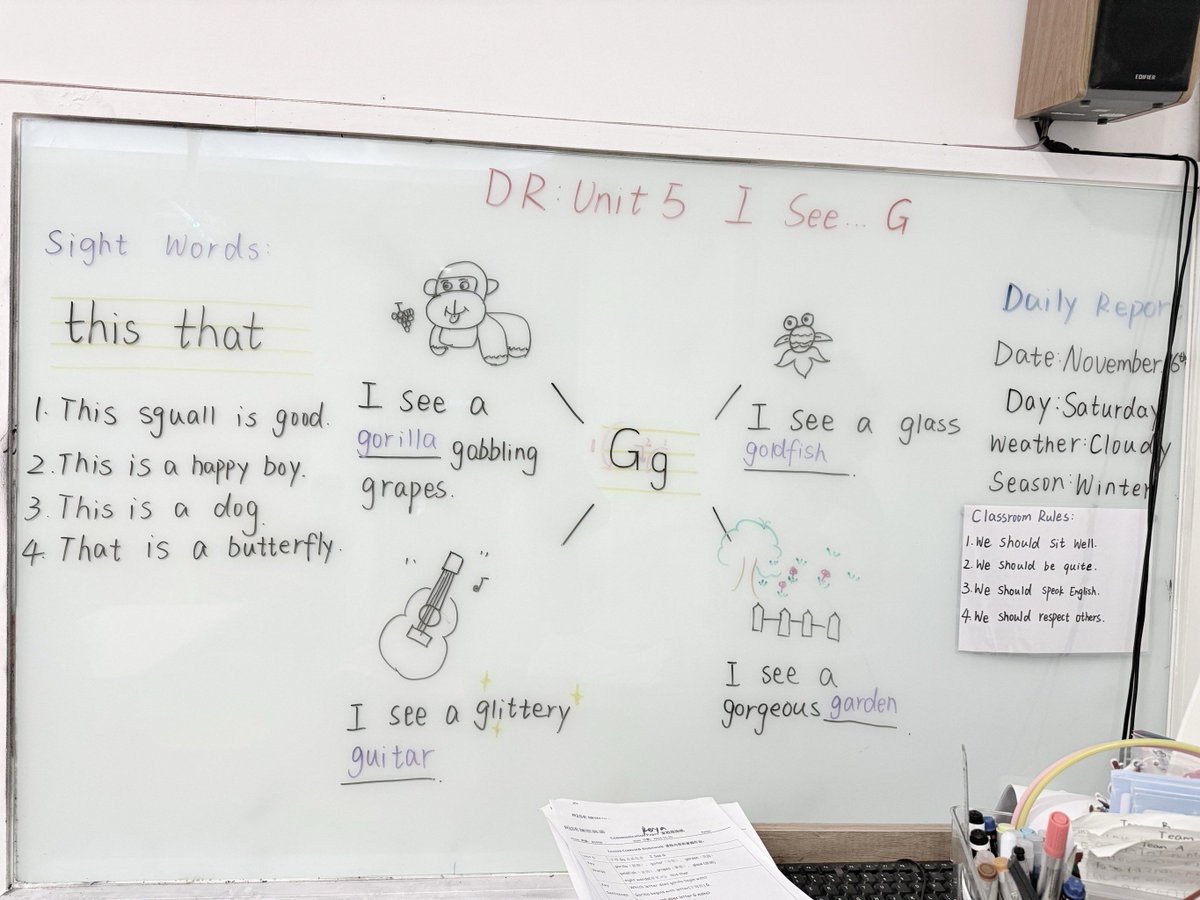 EDIFIER
DR: Unit 5 I See... G
Sight Words:
this that
1. This sguall is good.
2. This is a happy boy.
3. This is a dog.
4. That is a butterfly.
I see a
gorilla gobbling
grapes.
I see a glittery
guitar.
Gg
I see a glass
goldfish.
I see a
gorgeous garden.
Daily Repor
Date: November 16th
Day: Saturday
Weather: Cloudy
Season: Winter
Classroom Rules:
1. We should sit well.
2. We should be quite.
3. We should speak English.
4. We should respect others.
Team